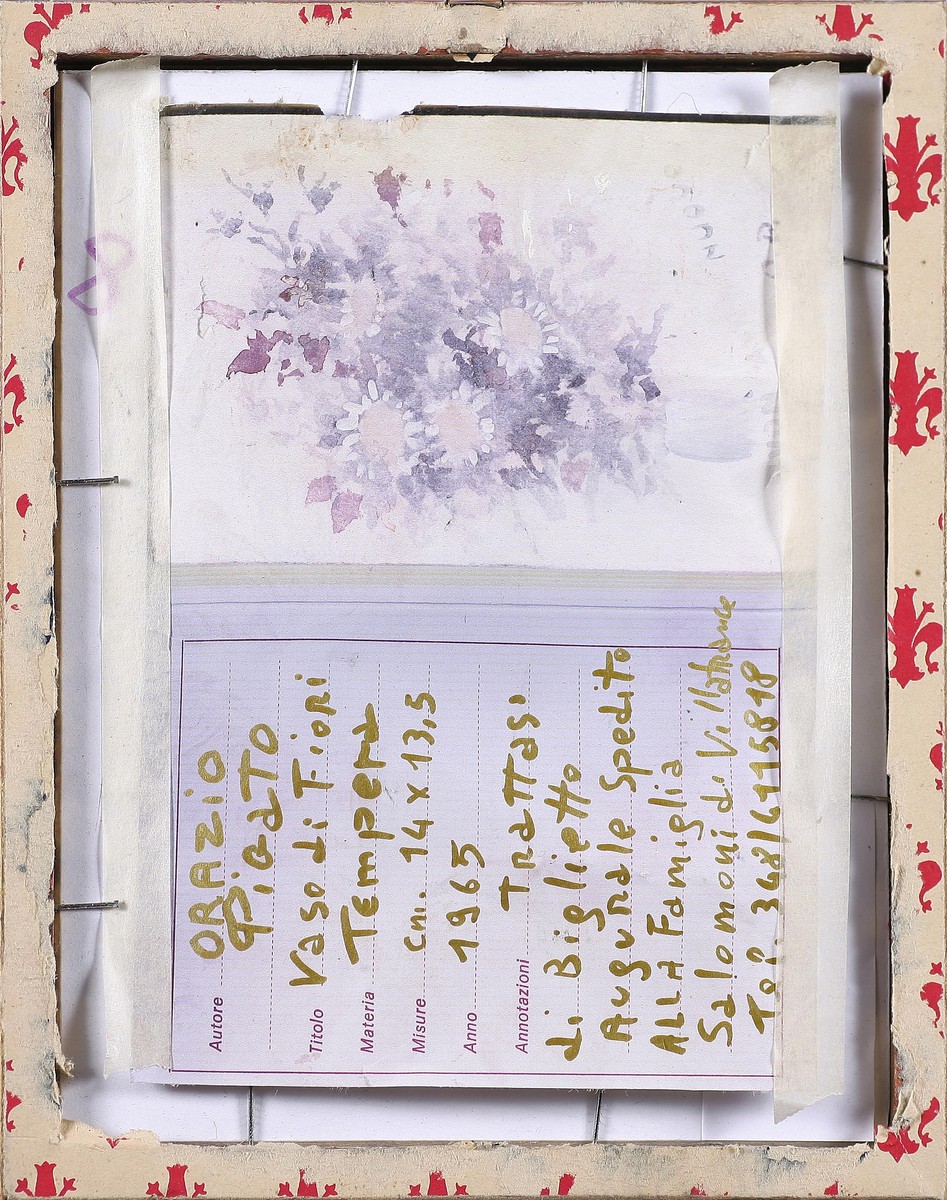 Autore ORAZIO
PIGATO
Titolo Vaso di Fiori
Materia Tempera
Misure cm. 14 x 13,5
Anno 1965
Annotazioni Trattasi
di Biglietto
Augurale Spedito
ALLA Famiglia
Salomoni di Villafranca